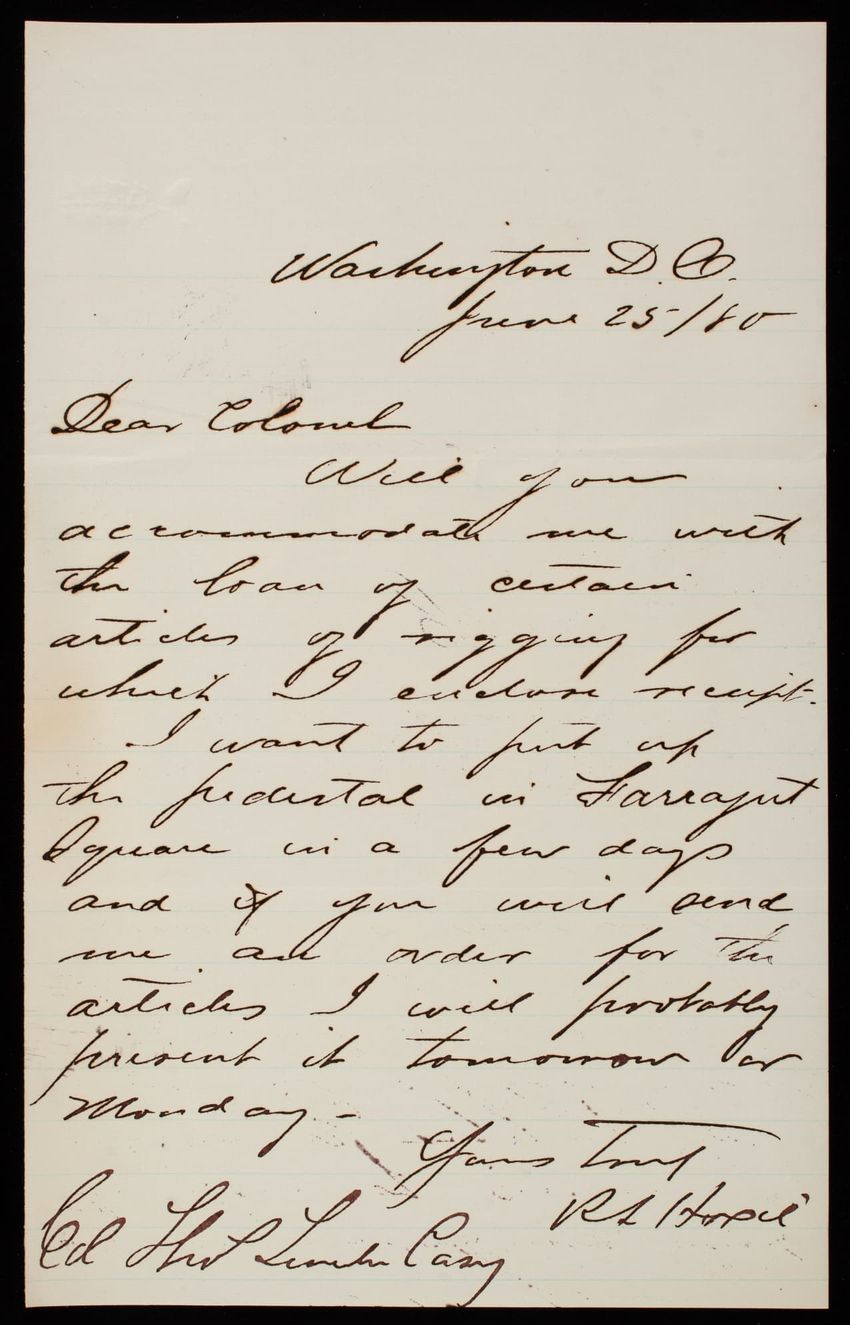 Washington D.C.
June 25/80
Dear Colonel
Will you
accommodate me with
the loan of certain
articles of rigging for
which I enclose receipt.
I want to put up
the pedestal in Farragut
Square in a few days
and if you will send
me an order for the
articles I will probably
present it tomorrow or
Monday -
Yours Truly
R L Hoxie
Col Thos Lincoln Casey